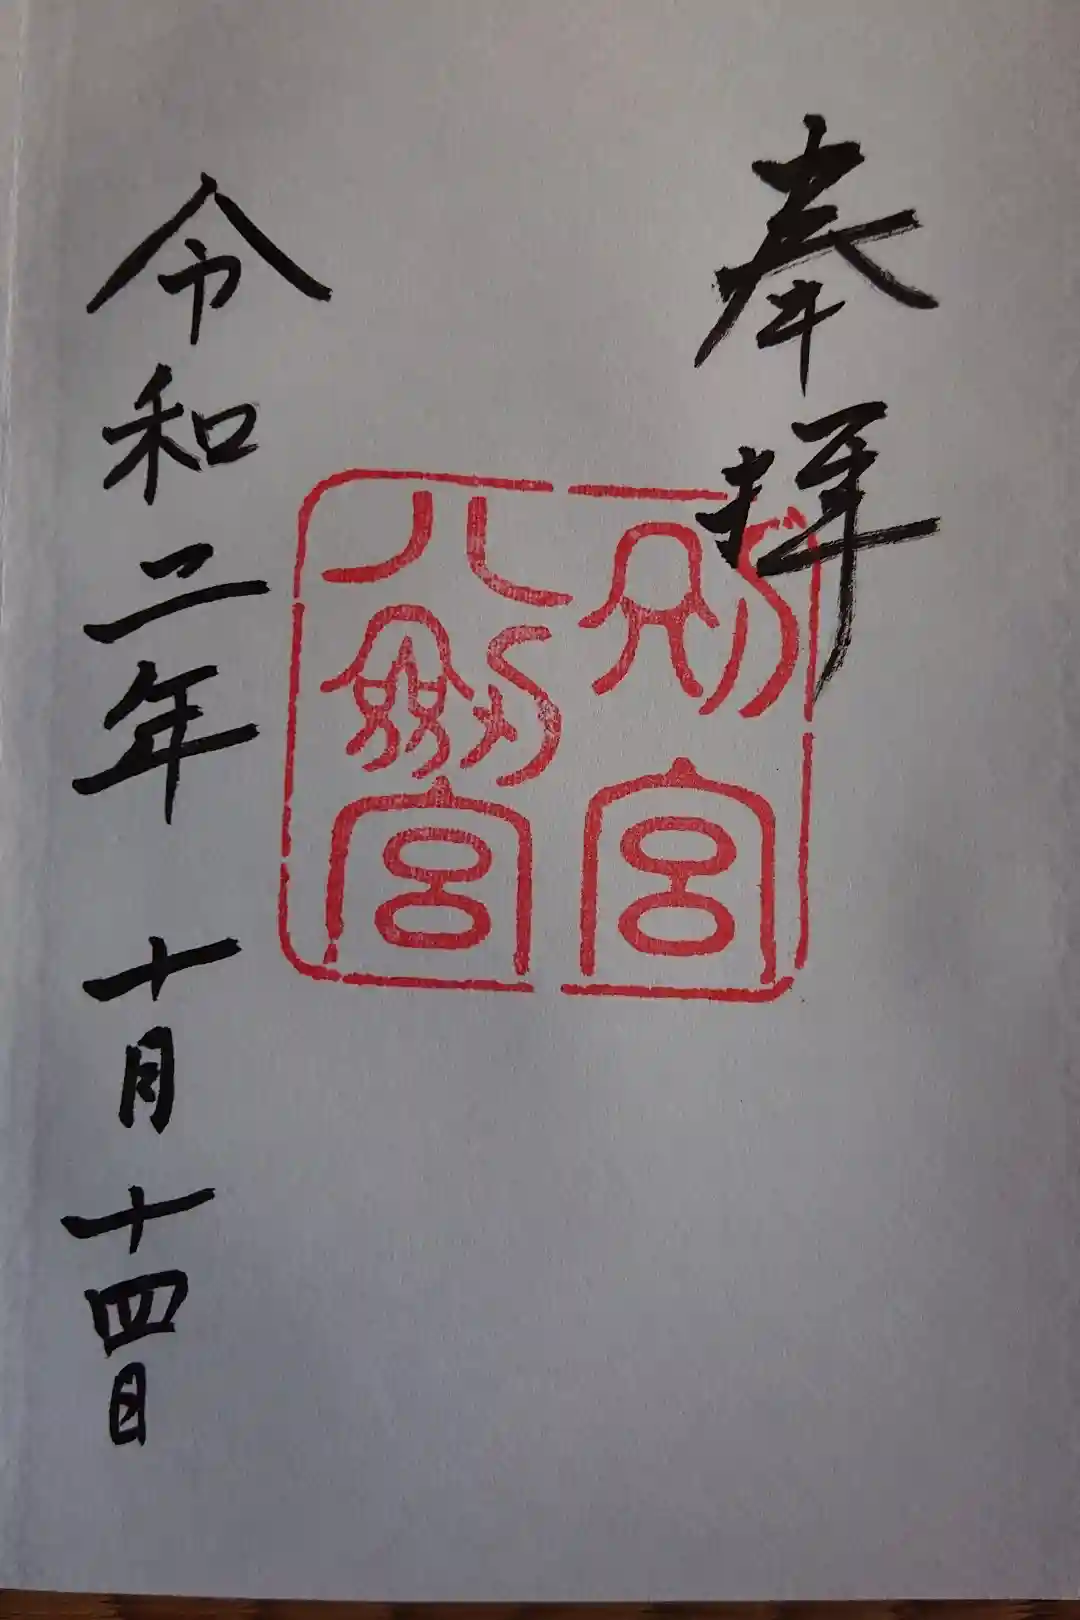 奉拝
別宮
八劔宮
令和二年 十月 十四日